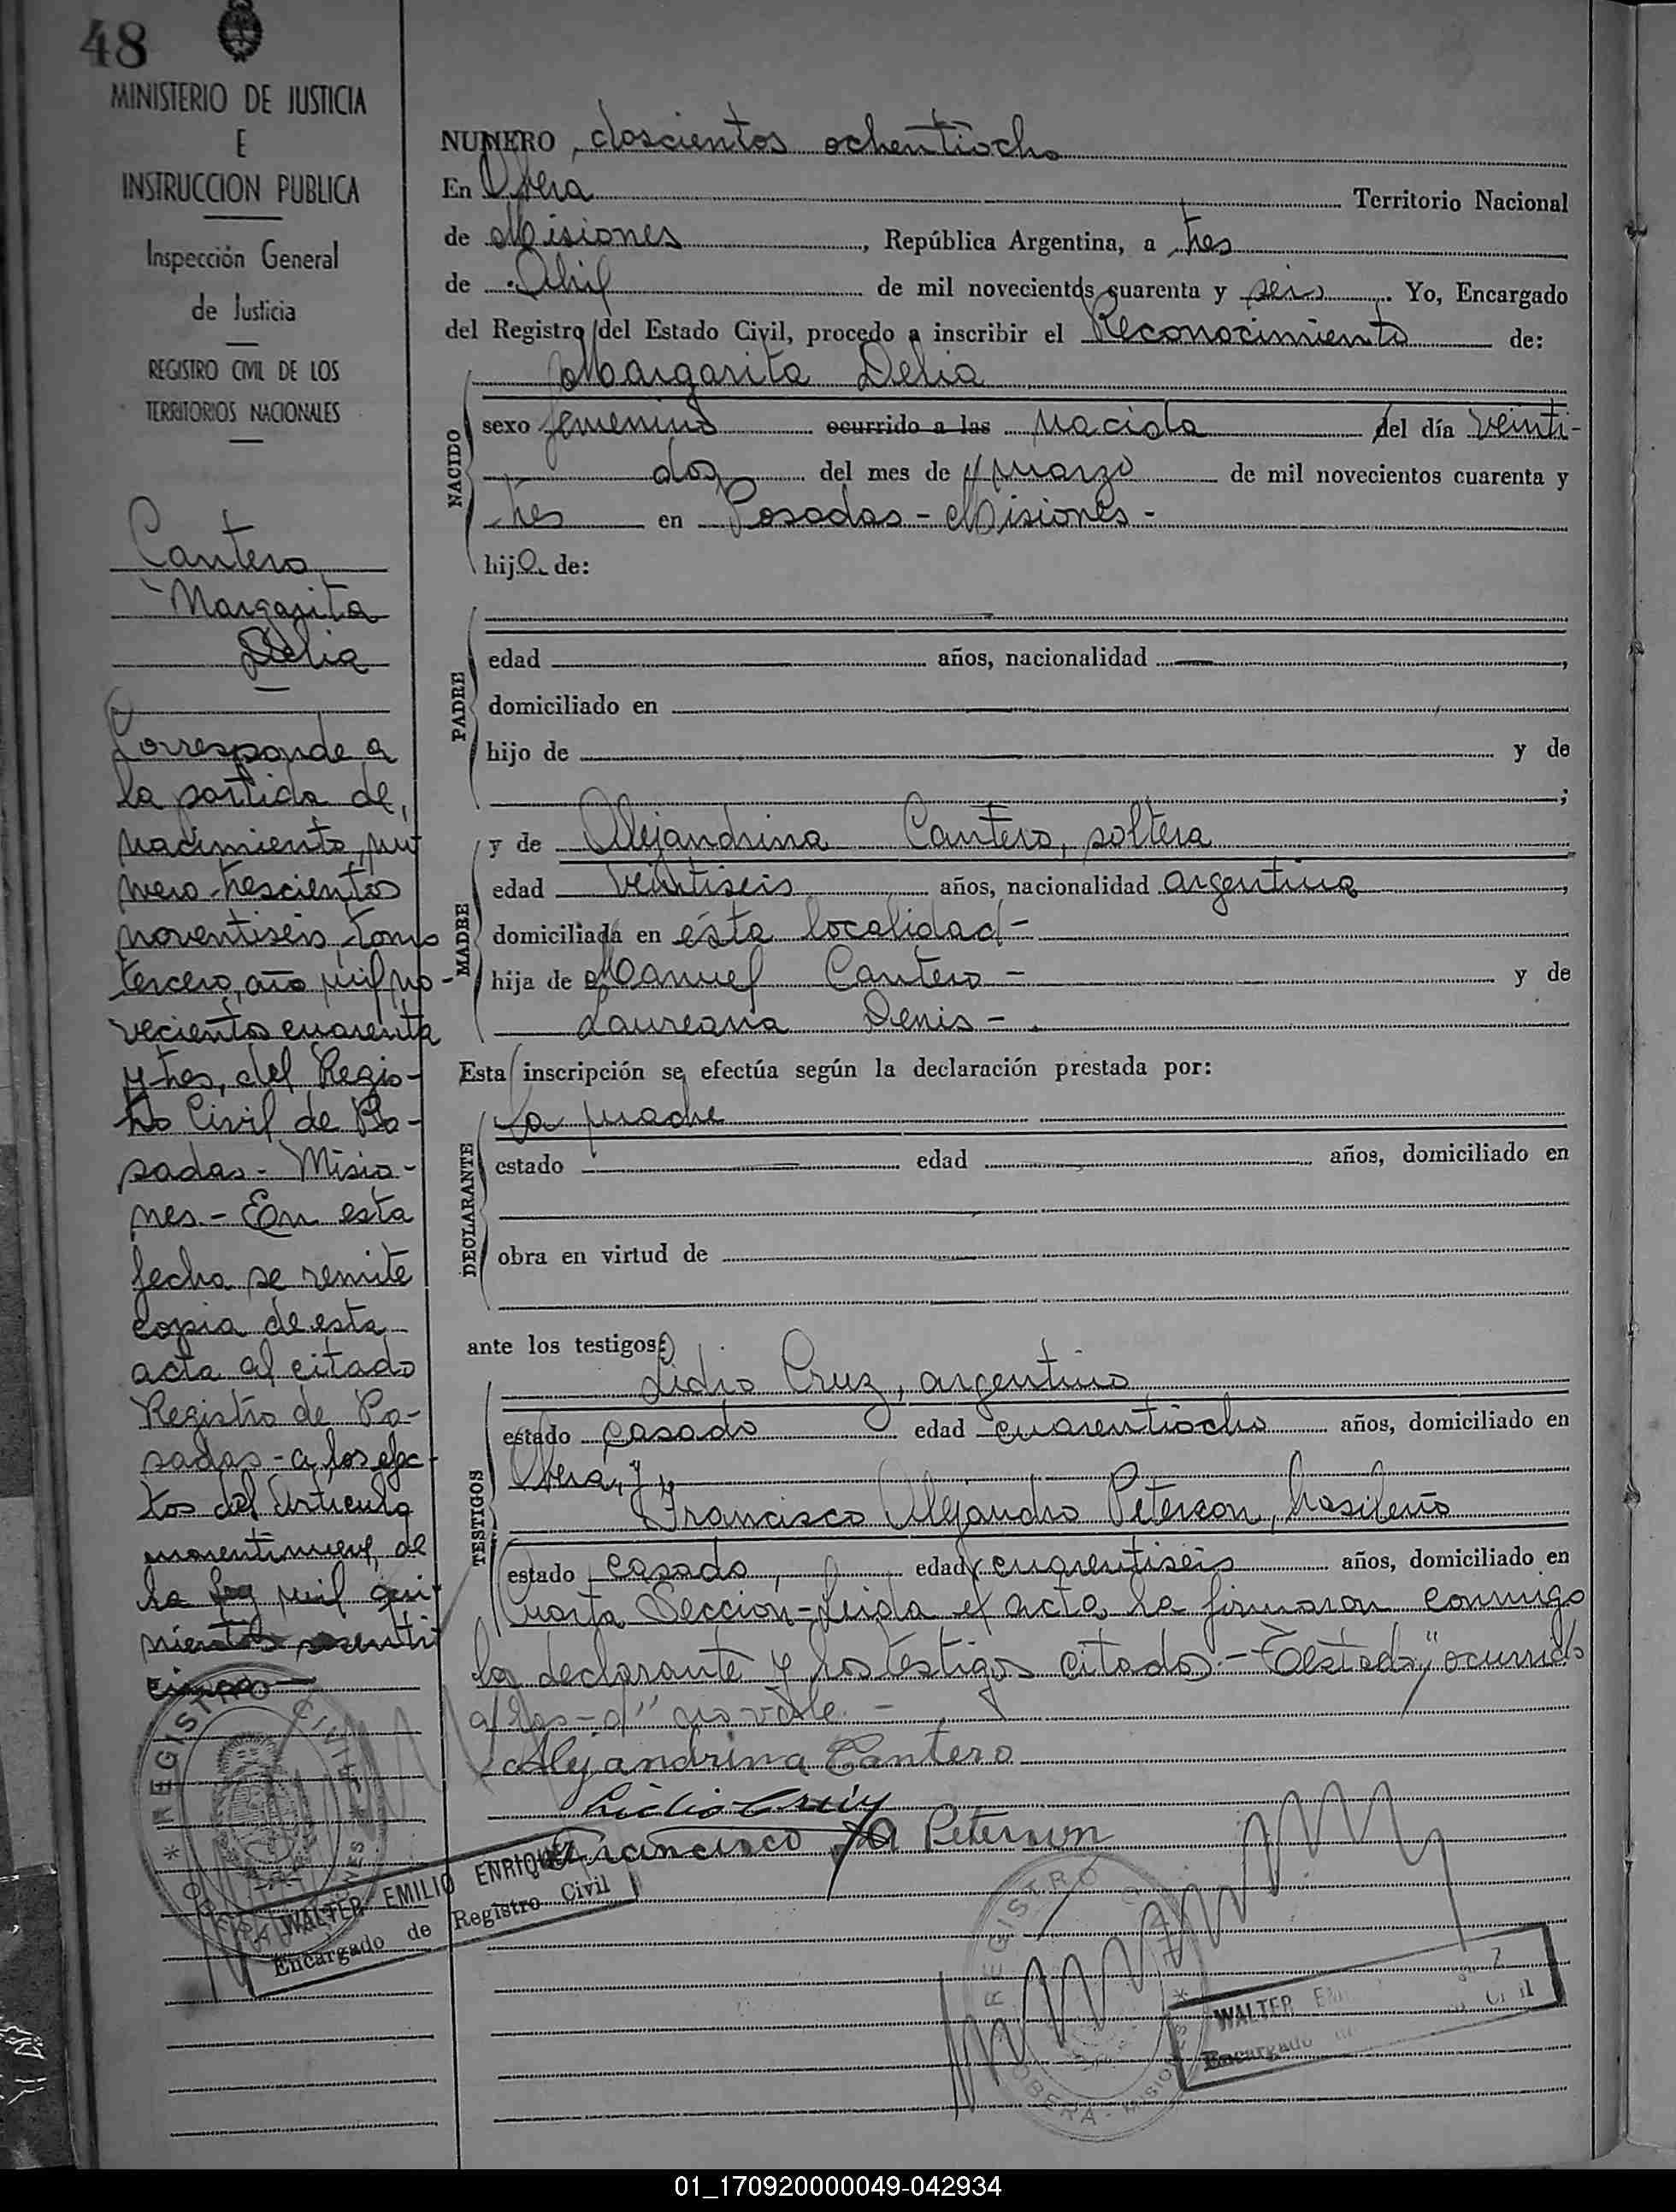 48
MINISTERIO DE JUSTICIA
E
INSTRUCCION PUBLICA
Inspección General
de Justicia
REGISTRO CIVIL DE LOS
TERRITORIOS NACIONALES
Cantero
Margarita
Delia
Corresponde a
la partida de
nacimiento nú
mero trescientos
noventiseis, tomo
tercero, año mil no-
vecientos cuarenta
y tres, del Regis-
tro Civil de Po-
sadas - Misio-
nes.- En esta
fecha se remite
copia de esta
acta al citado
Registro de Po-
sadas - a los efec-
tos del Articulo
cuarentinueve de
la ley mil qui
nientos sesenti
cinco
NUMERO doscientos ochentiocho
En Obera Territorio Nacional
de Misiones, República Argentina, a tres
de Abril de mil novecientos cuarenta y seis. Yo, Encargado
del Registro del Estado Civil, procedo a inscribir el Reconocimiento de:
Margarita Delia
NACIDO
sexo femenino ocurrido a las nacida del día veinti-
dos del mes de marzo de mil novecientos cuarenta y
tres en Posadas - Misiones -
hija de:
PADRE
edad años, nacionalidad ,
domiciliado en
hijo de y de
;
MADRE
y de Alejandrina Cantero, soltera
edad veintiseis años, nacionalidad argentina,
domiciliada en ésta localidad -
hija de Manuel Cantero - y de
Laureana Denis -
Esta inscripción se efectúa según la declaración prestada por:
DECLARANTE
La madre
estado edad años, domiciliado en
obra en virtud de
ante los testigos:
TESTIGOS
Lidio Cruz, argentino
estado casado edad cuarentiocho años, domiciliado en
Obera, y
Francisco Alejandro Peterson, brasileño
estado casado, edad cuarentiseis años, domiciliado en
Cuarta Seccion - Leida el acta, la firmaron conmigo
la declarante y los testigos citados.- Testado, "ocurrido
a las - o" no vale. -
Alejandrina Cantero
Lidio Cruz
Francisco A Peterson
REGISTRO CIVIL
WALTER EMILIO ENRIQUEZ
Encargado de Registro Civil
REGISTRO
OBERA - MISIONES
WALTER
Encargado
01_170920000049-042934